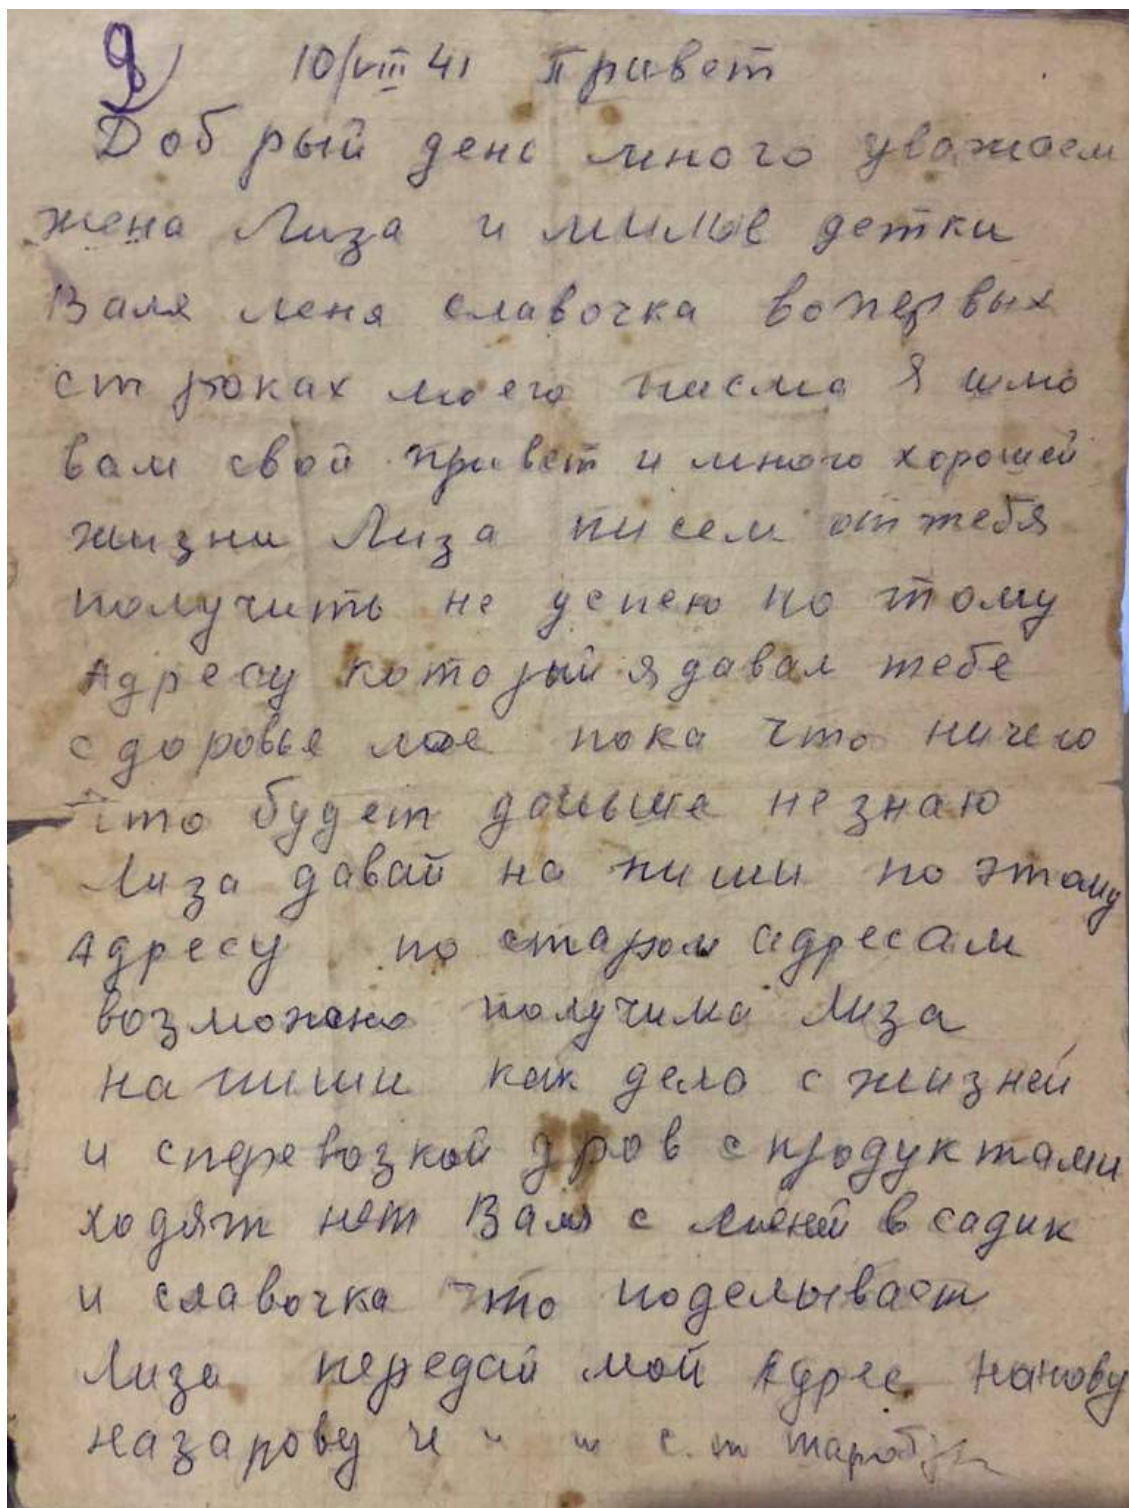 9
10/VIII 41 Привет
Добрый день много уважаем
жена Лиза и милые детки
Валя леня славочка вопервых
строках моего писма я шлю
вам свой привет и много хорошей
жизни Лиза писем от тебя
получить не успею по тому
Адресу который я давал тебе
сдоровье мое пока что ничего
что будет дальше не знаю
Лиза давай на пиши по этому
Адресу по старом адресам
возможно получимо Лиза
на пиши как дело с жизней
и сперевозкой дров с продуктами
ходят нет Валя с леней в садик
и славочка что поделывает
Лиза передай мой Адрес
назарову